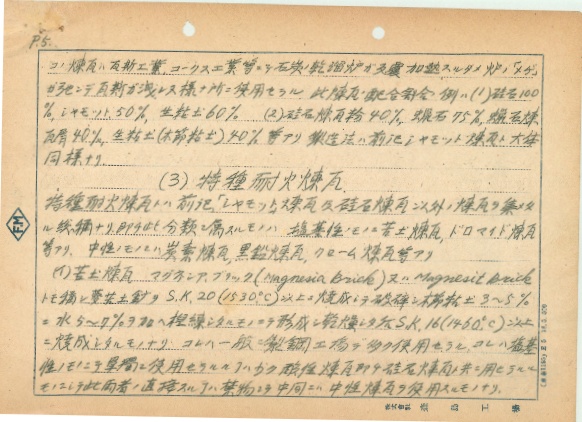 P.5.
コノ煉瓦ハ瓦斯工業、コークス工業等ニテ石炭ノ乾溜炉ガ 加熱スルタメ炉ノ「メヂ」
ガ ンデ瓦斯ガ洩レル様ナ所ニ使用セラル 此煉瓦ノ配合割合ノ例ハ (1) 硅石100
%, シャモット 50%, 生粘土60% (2) 硅石煉瓦粉 40%, 75%, 煉
瓦屑40%, 生粘土(木節粘土) 40% 等アリ 製造法ハ前記シャモット煉瓦ト大体
同様ナリ.
(3) 特種耐火煉瓦
特種耐火煉瓦トハ前記「シャモット」煉瓦及硅石煉瓦以外ノ煉瓦ヲ集メタ
ル総称ナリ 即チ 分類ニ属スルモノハ 塩基性ノモノニ苦土煉瓦, ドロマイド煉瓦
等アリ. 中性ノモノニハ炭素煉瓦, 黒鉛煉瓦, クローム煉瓦等アリ
(イ) 苦土煉瓦 マグネシア、ブリック (Magnesia brick) 又ハ Magnesit brick
トモ称シ 苦土鉱ヲ S.K. 20 (1530°C) 以上ニ焼成シテ破砕シ木節粘土 3~5%
ニ水 5~7% ヲ加ヘ捏練シタルモノニテ形成シ乾燥シタル S.K. 16 (1460°C) 以上
ニ焼成シタルモノナリ コレハ一般ニ製鋼工場デ多ク使用セラル, コレハ塩基
性ノモノニテ単独ニ使用セラルルアハ少ク 酸性煉瓦即チ硅石煉瓦ト共ニ用ヒラルル
モノニシテ此両者ノ直接スルアハ禁物ニテ中間ニハ中性煉瓦ヲ使用スルモノナリ.
FM
株式会社 工場